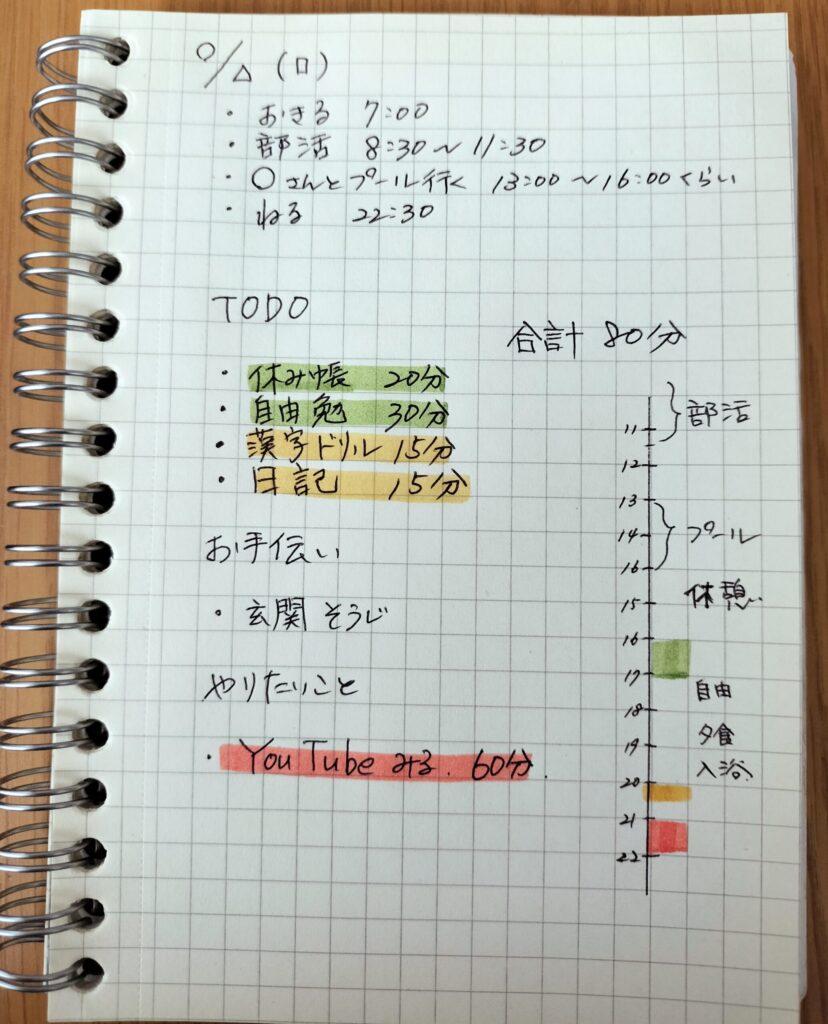 ○/△(□)
・おきる 7:00
・部活 8:30〜11:30
・○さんとプール行く 13:00〜16:00くらい
・ねる 22:30
TODO
合計 80分
・休み帳 20分
・自由勉 30分
・漢字ドリル 15分
・日記 15分
お手伝い
・玄関そうじ
やりたいこと
・YouTubeみる. 60分.
11 部活
12
13
14 プール
16
15 休憩
16
17 自由
18
19 夕食
入浴
20
21
22